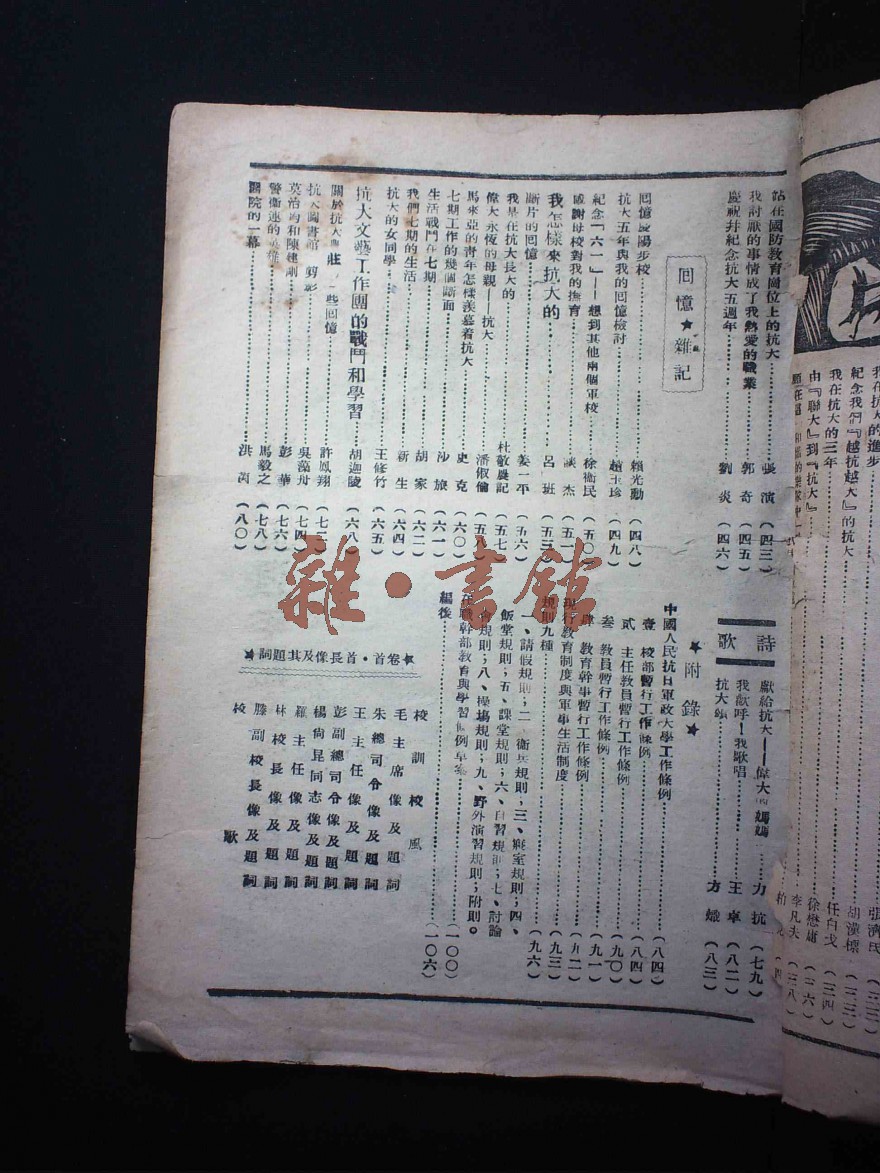 我在抗大的進步
張濟民
紀念我們『越抗越大』的抗大
胡漢標
我在抗大的三年
任白戈
由『聯大』到『抗大』
徐懋庸
李凡夫
站在國防教育崗位上的抗大 張演 (四三)
我討厭的事情成了我熱愛的職業 郭奇 (四五)
慶祝并紀念抗大五週年 劉炎 (四六)
回憶★雜記
回憶慶陽步校 賴光勳 (四八)
抗大五年與我的回憶檢討 趙玉珍 (四九)
紀念「六一」——想到其他兩個軍校 徐衛民 (五〇)
感謝母校對我的撫育 談杰 (五一)
我怎樣來抗大的 呂班 (五三)
斷片的回憶 姜一平 (五六)
我是在抗大長大的 杜敬農記 (五七)
偉大永恆的母親——抗大 潘俶倫 (五八)
馬來亞的青年怎樣羨慕着抗大 史克 (六〇)
七期工作的幾個斷面 沙旅 (六一)
生活戰鬥在七期 胡家 (六二)
我們七期的生活 新生 (六四)
抗大的女同學 王修竹 (六五)
抗大文藝工作團的戰鬥和學習 胡迦陵 (六八)
關於抗大 些回憶 許鳳翔
抗大圖書館剪影 吳藻舟 (七四)
莫治鈞和陳建剛 彭華 (七六)
警衛連的英雄 馬毅之 (七八)
醫院的一幕 洪茵 (八〇)
詩歌
獻給抗大——偉大的媽媽 力抗 (七九)
我歡呼!我歌唱 王卓 (八二)
抗大頌 方熾 (八三)
★附錄★
中國人民抗日軍政大學工作條例 (八四)
壹 校部暫行工作條例 (八四)
貳 主任教員暫行工作條例 (九〇)
叁 教員暫行工作條例 (九一)
肆 教育幹事暫行工作條例 (九二)
現行教育制度與軍事生活制度 (九三)
規則九種 (九六)
一、請假規則;二、衛兵規則;三、寢室規則;四、
飯堂規則;五、課堂規則;六、自習規則;七、討論
會規則;八、操場規則;九、野外演習規則;附則。
在職幹部教育與學習條例草案 (一〇〇)
編後 (一〇六)
★卷首·首長像及其題詞★
校訓校風
毛主席像及題詞
朱總司令像及題詞
王主任像及題詞
彭副總司令像及題詞
楊尚昆同志像及題詞
羅主任像及題詞
林校長像及題詞
滕副校長像及題詞
校歌
雜·書館